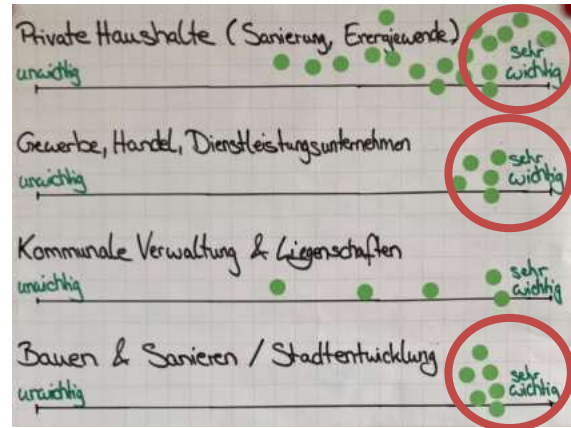 Private Haushalte (Sanierung, Energiewende)
unwichtig
sehr
wichtig
Gewerbe, Handel, Dienstleistungsunternehmen
unwichtig
sehr
wichtig
Kommunale Verwaltung & Liegenschaften
unwichtig
sehr
wichtig
Bauen & Sanieren / Stadtentwicklung
unwichtig
sehr
wichtig